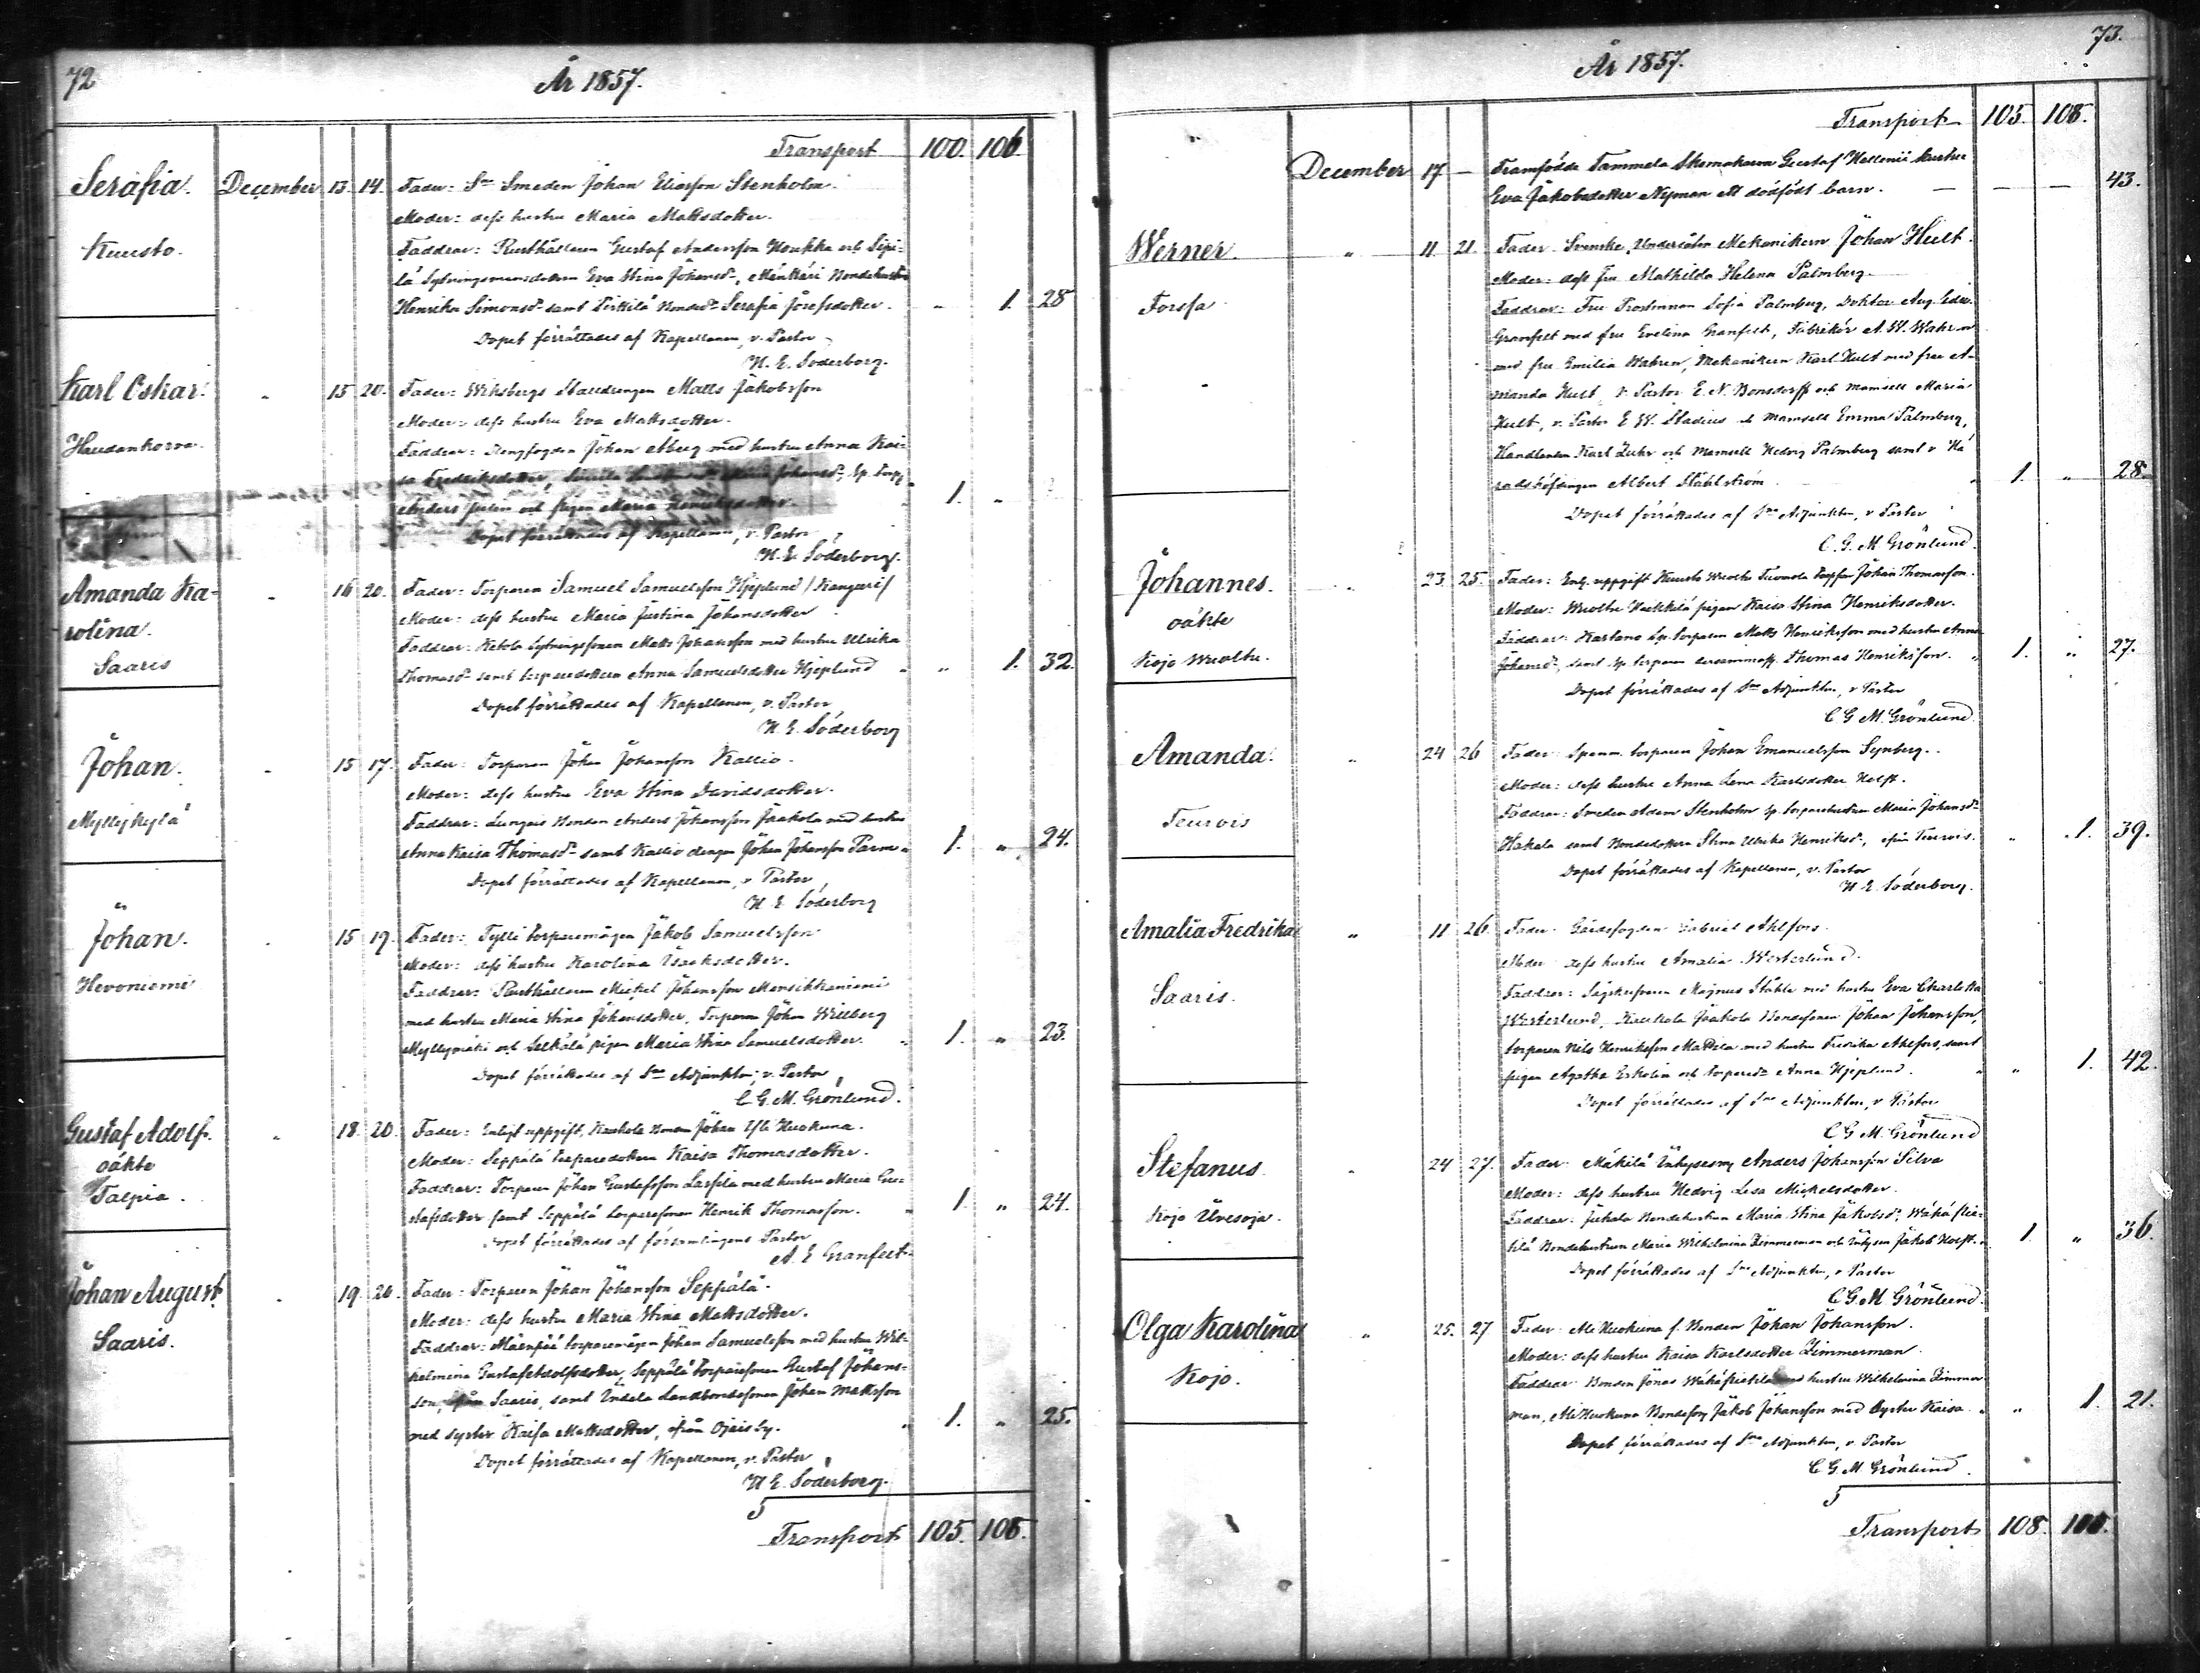 72
År 1857.
Transport 100. 106
Serafia. December 13. 14. Fader: Smeden Johan Eliasson Stenholm.
Moder: dess hustru Maria Mattsdotter.
Kuusto.
Faddrar: Rusthållaren Gustaf Andersson Houkka och Sipi-
lä Sytningsmansdottern Eva Stina Johansd., Mänkäri Bondehustru
Henrika Simonsdr samt Pirkkilä Bonded. Serafia Josefsdotter. " 1. 28
Dopet förrättades af Kapellanen, v. Pastor
H. E. Söderborg.
Karl Oskar. " 15 20. Fader: Wiksbergs Stalldrengen Matts Jakobsson
Moder: dess hustru Eva Mattsdotter.
Haudankorva.
Faddrar: Rengfogden Johan Åberg med hustru Anna Kai-
sa Fredriksdotter, Johansdr, Sp. Torp.
Anders och pigan Maria Henriksdotter. 1. "
Dopet förrättades af Kapellanen, v. Pastor
H. E. Söderborg.
Amanda Ka-
rolina.
Saaris
" 16 20. Fader: Torparen Samuel Samuelsson Hjeplund / Kangari /
Moder: dess hustru Maria Justina Johansdotter
Faddrar: Ketola Sytningssonen Matts Johansson med hustru Ulrika
Thomasdr samt torparedottern Anna Samuelsdotter Hjeplund " " 1. 32.
Dopet förrättades af Kapellanen, v. Pastor
H. E. Söderborg
Johan. " 15 17. Fader: Torparen Johan Johansson Kallio.
Moder: dess hustru Eva Stina Davidsdotter.
Myllykylä
Faddrar: Bonden Anders Johansson Jaakola med hustru
Anna Kaisa Thomasdr samt Kallio drengen Johan Johansson 1. " 24.
Dopet förrättades af Kapellanen, v. Pastor
H. E. Söderborg
Johan. " 15 19. Fader: Tylli torparemågen Jakob Samuelsson
Moder: dess hustru Karolina Isaksdotter.
Hevoniemi
Faddrar: Rusthållaren Mickel Johansson Mensikkaniemi
med hustru Maria Stina Johansdotter, Torparen Johan Willberg
Myllymäki och Selkälä pigan Maria Stina Samuelsdotter. " 1. " 23.
Dopet förrättades af Sne Adjunkten, v. Pastor
C. G. M. Grönlund.
Gustaf Adolf. " 18. 20. Fader: Enligt uppgift, Kaukola Bonden Johan Yli Kuokuna.
oäkte
Moder: Seppälä torparedottern Kaisa Thomasdotter.
Talpia.
Faddrar: Torparen Johan Gustafsson Lassila med hustru Maria Gus-
tafsdotter samt Seppälä torparesonen Henrik Thomasson. " 1. " 24.
Dopet förrättades af församlingens Pastor
A. E. Granfelt.
Johan August. " 19. 26. Fader: Torparen Johan Johansson Seppälä.
Moder: dess hustru Maria Stina Mattsdotter.
Saaris.
Faddrar: Mäenpää torparemågen Johan Samuelsson med hustru Wil-
helmina Gustafadolfsdotter, Seppälä torparesonen Gustaf Johans-
son, ifrån Saaris, samt Indela Landbondesonen Johan Mattsson
med syster Kaisa Mattsdotter, ifrån Ojaisby. " 1. " 25.
Dopet förrättades af Kapellanen, v. Pastor
H. E. Söderborg.
5
Transport 105. 108.
73.
År 1857.
Transport 105. 108.
December 17 — Framfödde Tammela Skomakaren Gustaf Hellenii hustru
Eva Jakobsdotter Nyman ett dödfödt barn. — — — 43.
Werner. " 11 21. Fader: Svenske Undersåten Mekanikern Johan Hult.
Moder: dess fru Mathilda Helena Palmberg.
Forssa
Faddrar: Fru Prostinnan Sofia Palmberg, Doktor Aug. Edv.
Granfelt med fru Evelina Granfelt, Fabrikör A. W. Wahren
med fru Emilia Wahren, Mekanikern Karl Hult med fru A-
manda Hult, v. Pastor E. N. Bonsdorff och Mamsell Maria
Hult, v. Pastor E. W. Stadius & Mamsell Emma Palmberg,
Handlanden Karl Luhr och Mamsell Hedvig Palmberg samt v. Hä-
radshöfdingen Albert Ståhlström " 1. " 28.
Dopet förrättades af Sne Adjunkten, v. Pastor
C. G. M. Grönlund.
Johannes.
oäkte
Kojo Wuolte.
" 23 25. Fader: Enl. uppgift Kuusto Wuolte torpson Johan Thomasson.
Moder: Wuolte Heikkilä pigan Kaisa Stina Henriksdotter.
Faddrar: Kartano Sp. torparen Matts Henriksson med hustru Anna
Johansd., samt Sp. torparen dersammast. Thomas Henriksson. " 1. " 27.
Dopet förrättades af Sne Adjunkten, v. Pastor
C G M. Grönlund.
Amanda. " 24 26 Fader: torparen Johan Emanuelsson Synberg.
Moder: dess hustru Anna Lena Karlsdotter Holst.
Teurois
Faddrar: Smeden Adam Stenholm Sp. torparehustrun Maria Johansdr
Hakala samt Bondedottern Stina Ulrika Henriksd., ifrån Teurois. " 1. 39.
Dopet förrättades af Kapellanen, v. Pastor
H. E. Söderborg.
Amalia Fredrika " 11 26. Fader: Gårdsfogden Gabriel Ahlfors.
Moder: dess hustru Amalia Westerlund.
Saaris.
Faddrar: Magnus Ståhle med hustru Eva Charlotta
Westerlund, Kaukola Jaakola Bondesonen Johan Johansson,
torparen Nils Henriksson Mattila med hustru Fredrika Ahlfors, samt
pigan Agatha Eskolin och torpared. Anna Hjeplund. " " 1. 42.
Dopet förrättades af Sne Adjunkten, v. Pastor
C G M. Grönlund
Stefanus " 24 27. Fader: Mäkilä Inhysesmg Anders Johansson Silva
Moder: dess hustru Hedvig Lisa Mickelsdotter.
Kojo
Faddrar: Jukola Bondehustrun Maria Stina Jakobsd., Wähä Pie-
tilä Bondehustrun Maria Wilhelmina Zimmerman och Inhysen Jakob Holst. 1. " 36.
Dopet förrättades af Sne Adjunkten, v. Pastor
C G M Grönlund.
Olga Karolina " 25. 27 Fader: Ali Kuokuna f. Bonden Johan Johansson.
Moder: dess hustru Kaisa Karlsdotter Zimmerman.
Kojo.
Faddrar: Bonden Jonas Wähä Pietilä med hustru Wilhelmina Zimmer-
man, Ali Kuokuna Bondeson Jakob Johansson med Syster Kaisa. " " 1. 21.
Dopet förrättades af Sne Adjunkten, v. Pastor
C G M Grönlund.
5
Transport 108.